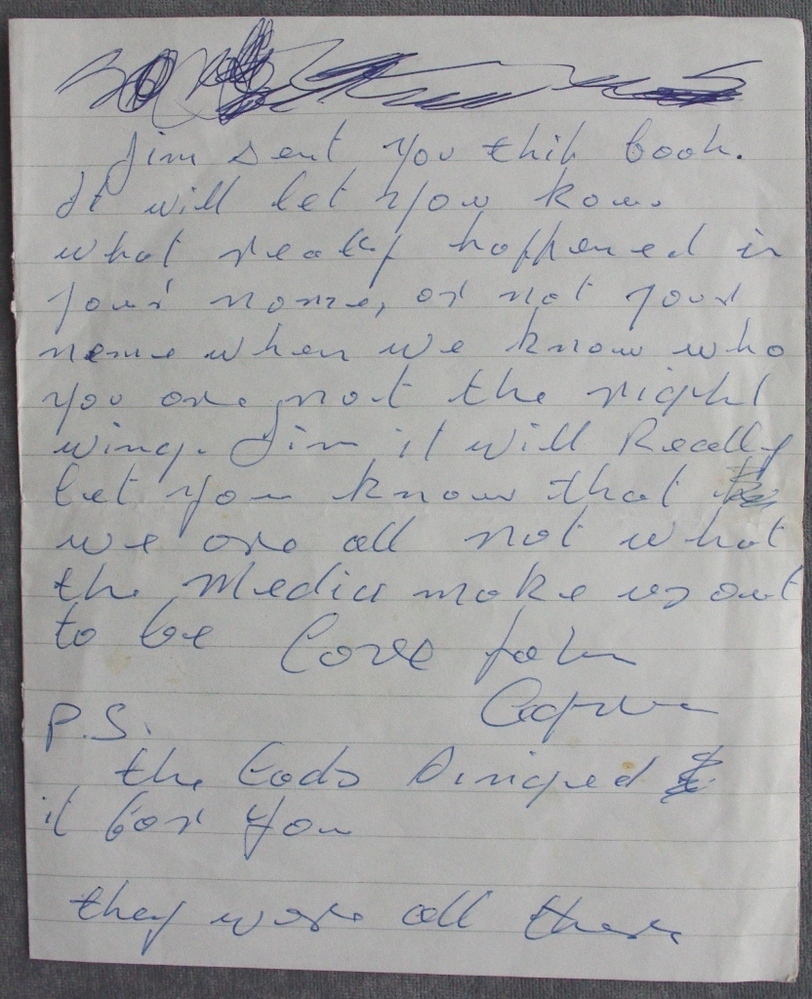 Jim sent you this book.
It will let you know
what really happened in
your name, or not your
name when we know who
you are, not the right
wing. Jim it will Really
let you know that
we are all not what
the Media make us out
to be Love John
P.S.
the Lads singed
it for you
they were all there